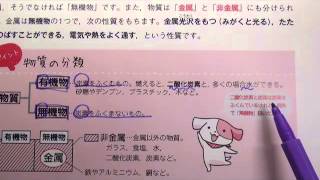 う。そうでなければ「無機物」です。また、物質は「金属」と「非金属」にも分けられ
金属は無機物の1つで、次の性質をもちます。金属光沢をもつ（みがくと光る）、たた
のばすことができる、電気や熱をよく通す、という性質です。
イント
物質の分類
有機物
燃えると、二酸化炭素と、多くの場合水ができる。
砂糖やデンプン、プラスチック、木など。
物質
無機物
有機物
無機物
非金属…金属以外の物質。
ガラス、食塩、水、
二酸化炭素、炭素など。
金属
鉄やアルミニウム、銅など。